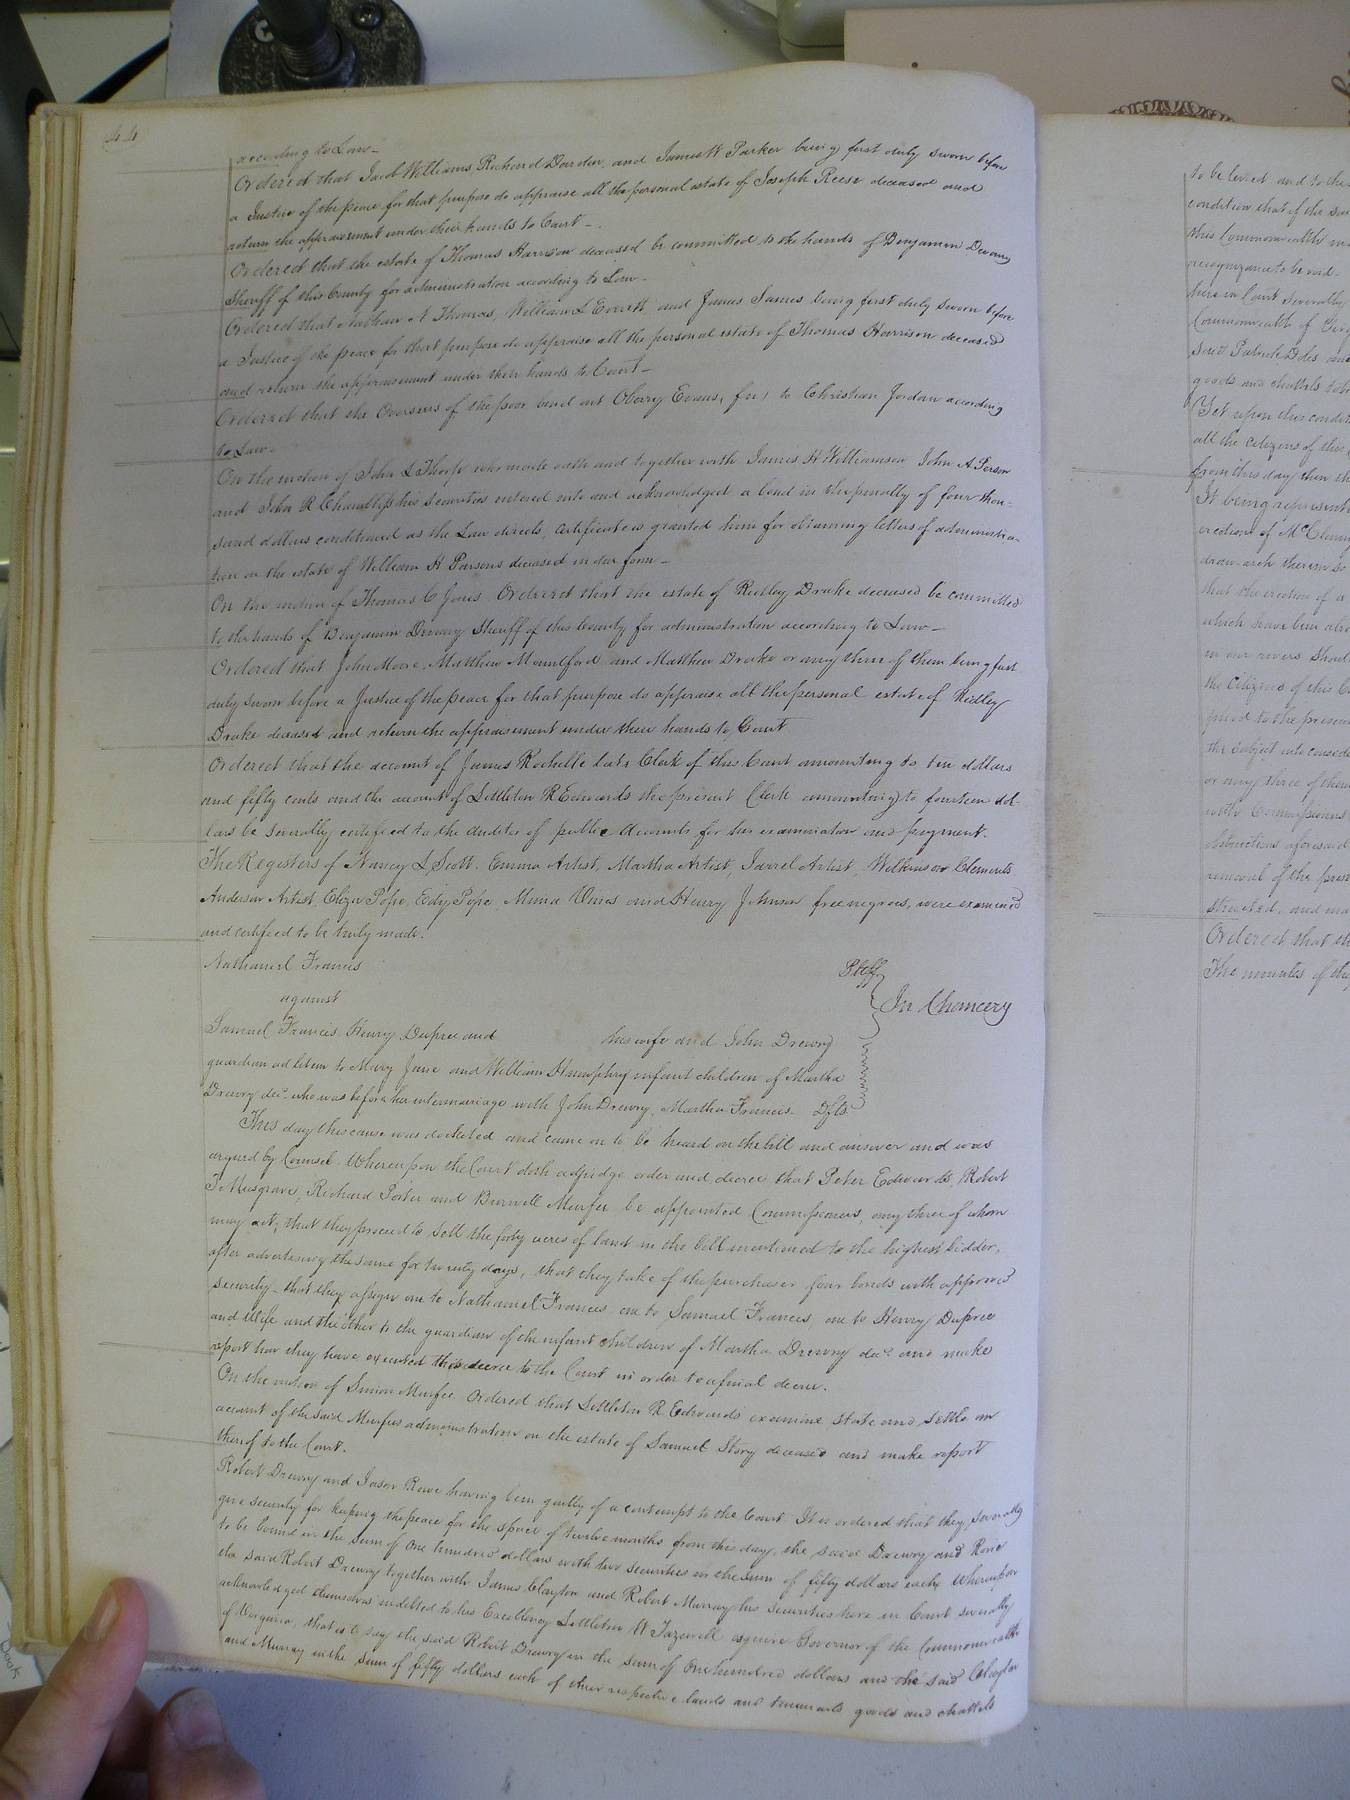 44
according to Law_
Ordered that Jacob Williams, Richard Darden, and James W Parker being first duly sworn before
a Justice of the peace for that purpose do appraise all the personal estate of Joseph Reese deceased and
return the appraisement under their hands to Court_
Ordered that the estate of Thomas Harrison deceased be committed to the hands of Benjamin Drewry
Sheriff of this County for administration according to Law_
Ordered that Nathan N Thomas, William L Everett, and James James being first duly sworn before
a Justice of the peace for that purpose do appraise all the personal estate of Thomas Harrison deceased
and return the appraisement under their hands to Court_
Ordered that the Overseers of the poor bind out Oberry Evans, fn, to Christian Jordan according
to Law.
On the motion of John L Thorp who made oath and together with James H Williamson John A Person
and John R Chambliss his securities entered into and acknowledged a bond in the penalty of four thou-
sand dollars conditioned as the Law directs, certificate is granted him for obtaining letters of administra-
tion on the estate of William H Parsons deceased in due form_
On the motion of Thomas C Jones Ordered that the estate of Ridley Drake deceased be committed
to the hands of Benjamin Drewry Sheriff of this County for administration according to Law_
Ordered that John Moore, Matthew Mountford and Matthew Drake or any three of them being first
duly sworn before a Justice of the peace for that purpose do appraise all the personal estate of Ridley
Drake deceased and return the appraisement under their hands to Court
Ordered that the account of James Rochelle late Clerk of this Court amounting to ten dollars
and fifty cents and the account of Littleton R Edwards the present Clerk amounting to fourteen dol-
lars be severally certified to the auditor of public Accounts for his examination and payment.
The Registers of Nancy L Scott, Emma Artist, Martha Artist, Jarrel Artist, Wilkinson Clements
Anderson Artist, Eliza Pope, Edy Pope, and Henry Johnson free negroes, were examined
and certified to be truly made.
Nathaniel Francis Pltff
against In Chancery
Samuel Francis, Henry Dupree and his wife and John Drewry
guardian ad litem to Mary Jane and William Humphry infant children of Martha
Drewry decd. who was before her intermarriage with John Drewry, Martha Francis. Dfts.
This day this cause was docketed and came on to be heard on the bill and answer and was
argued by Counsel. Whereupon the Court doth adjudge order and decree that Peter Edwards, Robert
T Musgrave, Richard Porter and Burwell Murfee be appointed Commissioners, any three of whom
may act, that they proceed to sell the forty acres of land in the bill mentioned to the highest bidder,
after advertising the same for twenty days, that they take of the purchaser four bonds with approved
security_ that they assign one to Nathaniel Francis one to Samuel Francis, one to Henry Dupree
and Wife and the other to the guardian of the infant children of Martha Drewry decd. and make
report how they have executed this decree to the Court in order to a final decree.
On the motion of Simon Murfee Ordered that Littleton R Edwards examine state and settle an
account of the said Murfees administration on the estate of Samuel Story deceased and make report
thereof to the Court.
Robert Drewry and Jason Rowe having been guilty of a contempt to the Court. It is ordered that they severally
give security for keeping the peace for the space of twelve months from this day, the said Drewry and Rowe
to be bound in the sum of One hundred dollars with two securities in the sum of fifty dollars each. Whereupon
the said Robert Drewry together with James Clayton and Robert Murray his securities here in Court severally
acknowledged themselves indebted to his Excellency Littleton W Tazewell esquire Governor of the Commonwealth
of Virginia, that is to say the said Robert Drewry in the sum of One hundred dollars and the said Clayton
and Murray in the sum of fifty dollars each of their respective lands and tenements goods and chattels
to be levied and to the
condition that if the said
this Commonwealth
recognizance to be void
here in Court severally
Commonwealth of Virg
said Patrick
goods and chattels to
Yet upon this condit
all the citizens of this
from this day, then th
It being represent
erection of McClenny
draw arch therein so
that the erection of a
which have been alre
in our rivers should
the Citizens of this C
plied to the present
the subject into conside
or any three of them
with Commissioners
obstructions aforesaid
removal of the pres
structed, and ma
Ordered that th
The minutes of thes